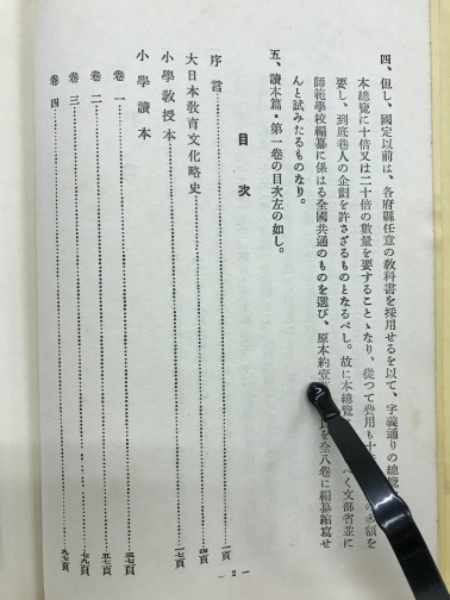 四、但し、國定以前は、各府縣任意の敎科書を採用せるを以て、字義通りの總覽
本總覽に十倍又は二十倍の數量を要することゝなり、從つて費用も十 の多額を
要し、到底巷人の企劃を許さざるものとなるべし。故に本總覽 べく文部省並に
師範學校編纂に係はる全國共通のものを選び、原本約壹 を全八卷に編纂縮寫せ
んと試みたるものなり。
五、讀本篇・第一卷の目次左の如し。
目次
序言 一頁
大日本敎育文化略史 四頁
小學敎授本 一七頁
小學讀本
卷一
卷二 五七頁
卷三 七九頁
卷四 九七頁
— 2 —